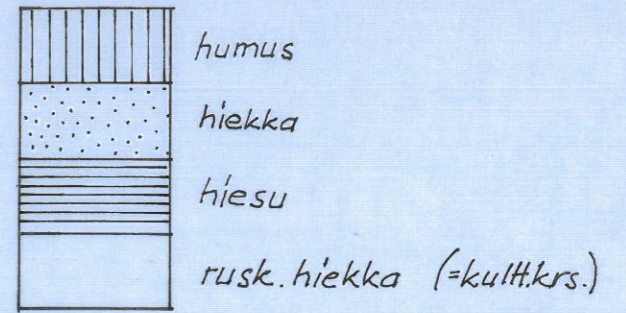 humus
hiekka
hiesu
rusk. hiekka (=kultt.krs.)